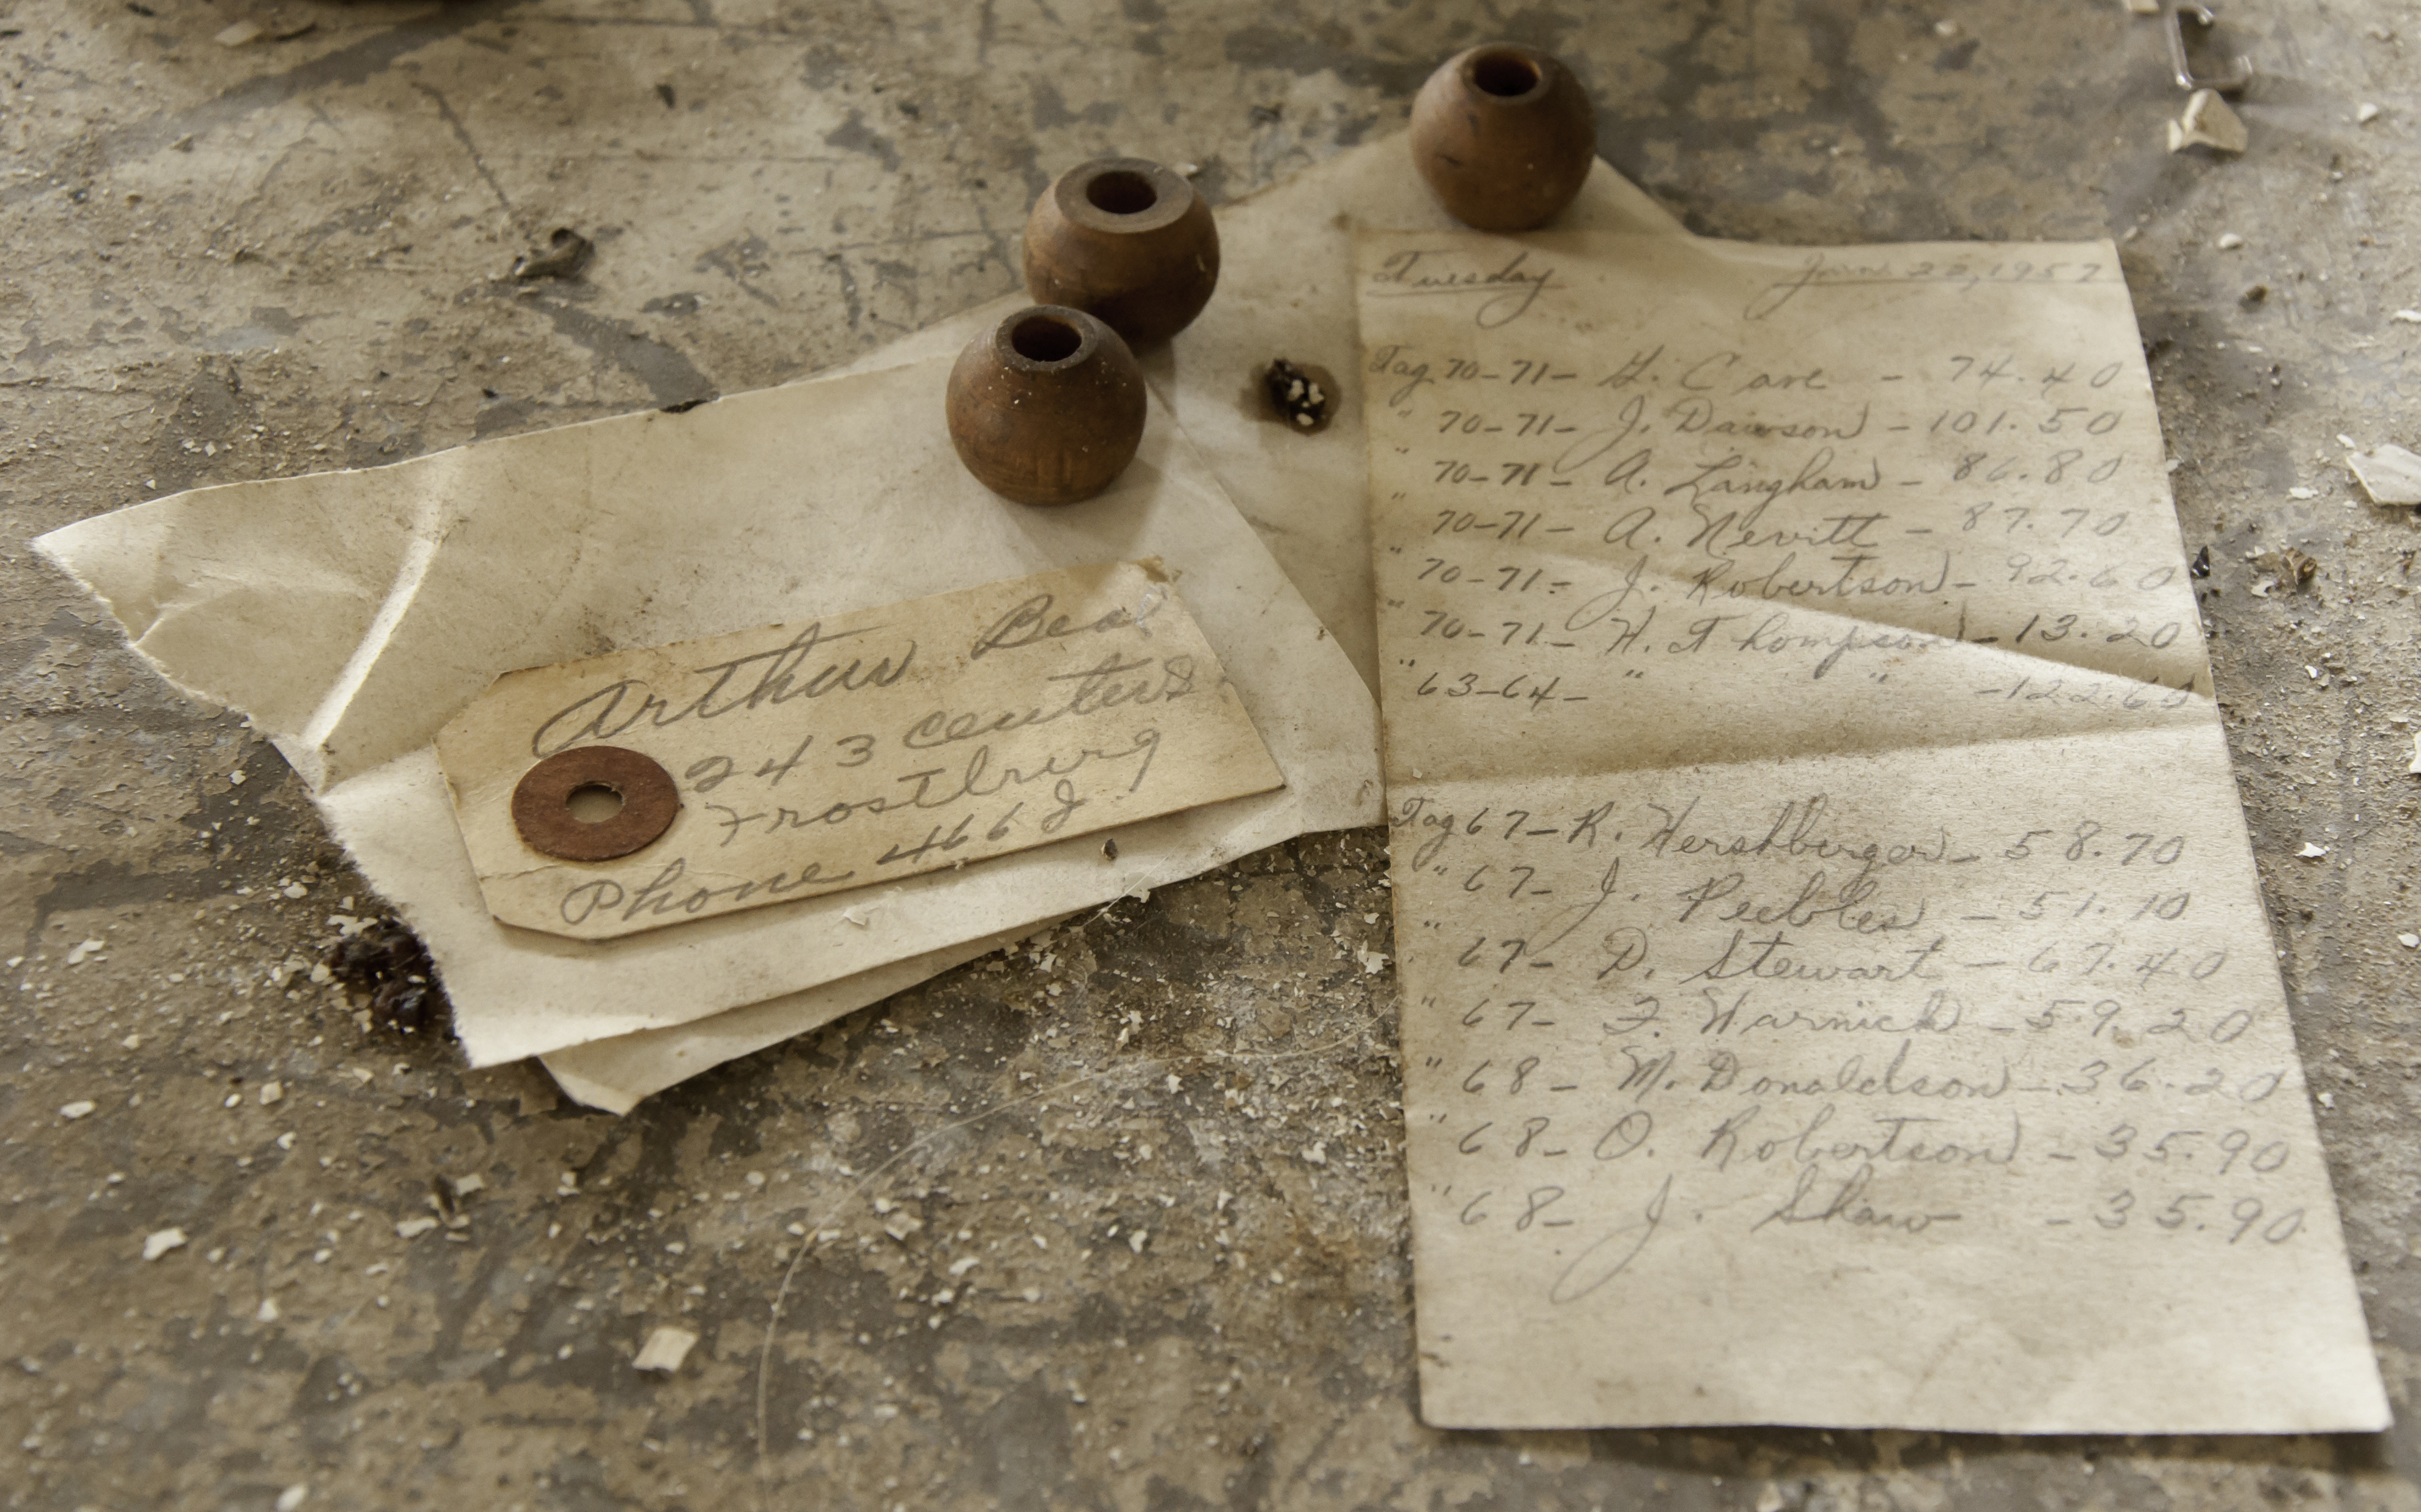 Arthur Bea
243 Center S
Frostburg
Phone 466 J
Tuesday Jan. 22, 1957
Tag 70-71- G. Cave - 74.40
" 70-71- J. Dawson - 101.50
" 70-71- A. Langham - 86.80
" 70-71- A. Nevitt - 87.70
" 70-71- J. Robertson - 92.60
" 70-71- H. Thompson - 13.20
" 63-64- " " - 122.60
Tag 67- R. Hershberger - 58.70
" 67- J. Peebles - 51.10
" 67- D. Stewart - 67.40
" 67- F. Warnick - 59.20
" 68- M. Donaldson - 36.20
" 68- O. Robertson - 35.90
" 68- J. Shaw - 35.90